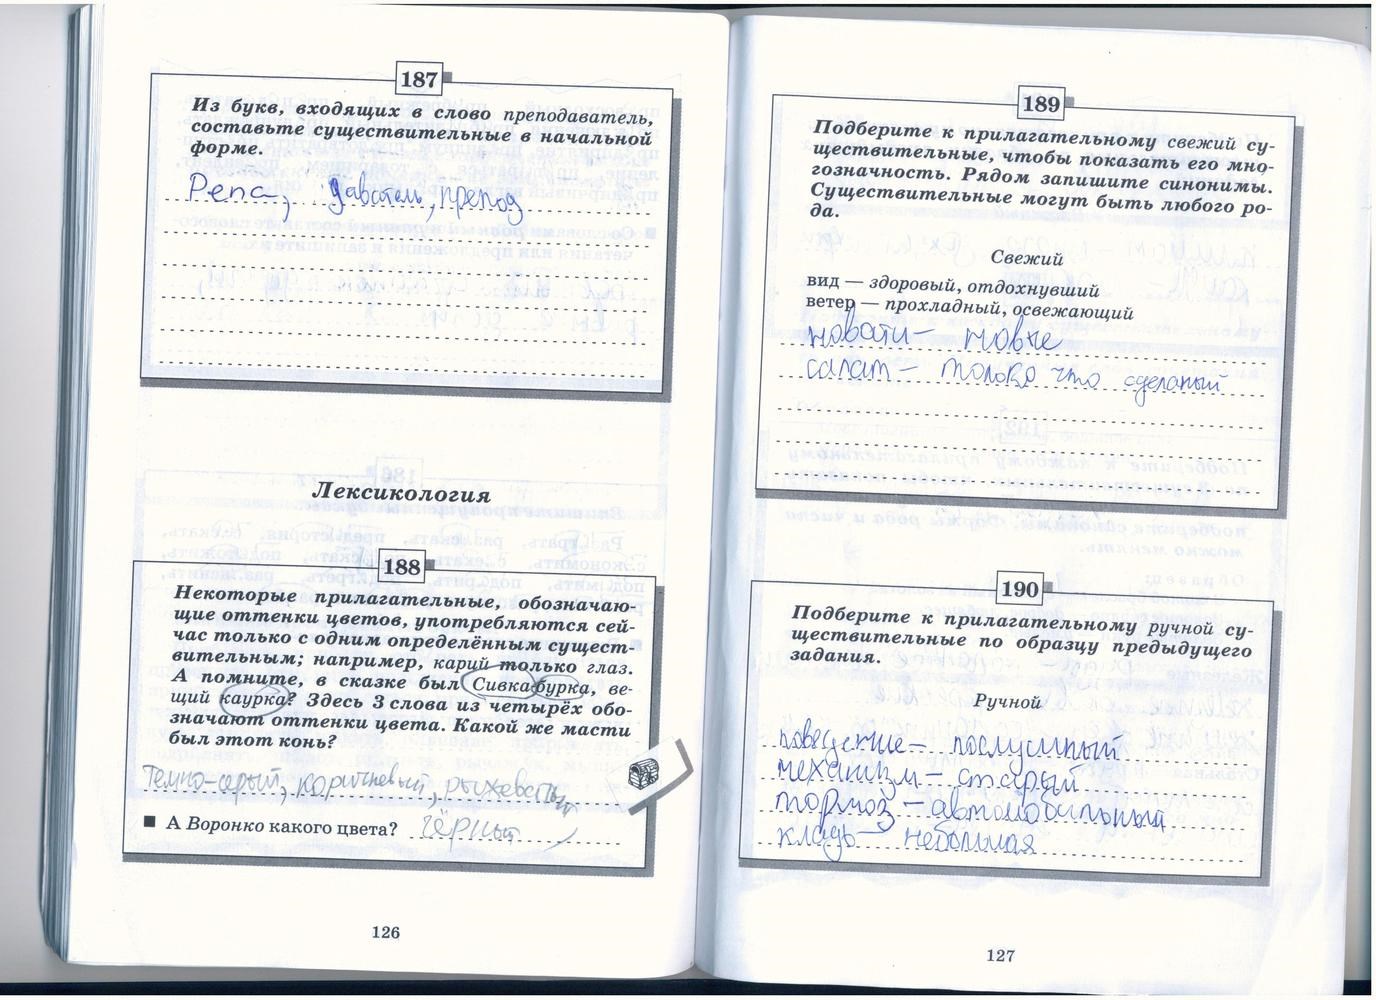 187
Из букв, входящих в слово преподаватель,
составьте существительные в начальной
форме.
Репа, даватель, препод
Лексикология
188
Некоторые прилагательные, обозначаю-
щие оттенки цветов, употребляются сей-
час только с одним определённым сущест-
вительным; например, карий только глаз.
А помните, в сказке был Сивка бурка, ве-
щий каурка? Здесь 3 слова из четырёх обо-
значают оттенки цвета. Какой же масти
был этот конь?
темно-серый, коричневый, рыжеватый
А Воронко какого цвета? чёрный
126
189
Подберите к прилагательному свежий су-
ществительные, чтобы показать его мно-
гозначность. Рядом запишите синонимы.
Существительные могут быть любого ро-
да.
Свежий
вид — здоровый, отдохнувший
ветер — прохладный, освежающий
новости – новые
салат – только что сделаный
190
Подберите к прилагательному ручной су-
ществительные по образцу предыдущего
задания.
Ручной
поведение – послушный
механизм – старый
тормоз – автомобильный
кладь – небольшая
127